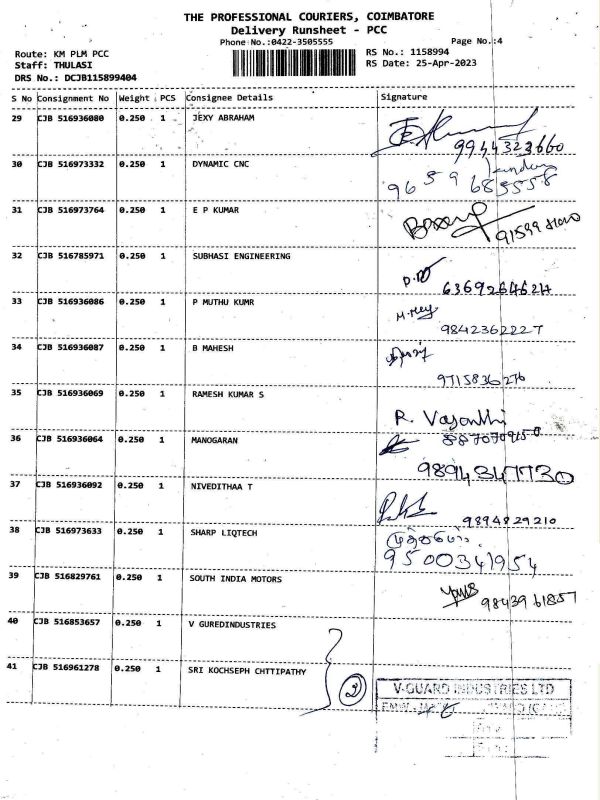 THE PROFESSIONAL COURIERS, COIMBATORE
Delivery Runsheet - PCC
Phone No.:0422-3505555
Page No.:4
Route: KM PLM PCC
RS No.: 1158994
Staff: THULASI
RS Date: 25-Apr-2023
DRS No.: DCJB115899404
S No Consignment No Weight PCS Consignee Details Signature
29 CJB 516936080 0.250 1 JEXY ABRAHAM
9944323660
30 CJB 516973332 0.250 1 DYNAMIC CNC
9659685558
31 CJB 516973764 0.250 1 E P KUMAR
32 CJB 516785971 0.250 1 SUBHASI ENGINEERING
6369264624
33 CJB 516936086 0.250 1 P MUTHU KUMR
9842362227
34 CJB 516936087 0.250 1 B MAHESH
9715836276
35 CJB 516936069 0.250 1 RAMESH KUMAR S
R. Vasanthi
8870709150
36 CJB 516936064 0.250 1 MANOGARAN
9894347730
37 CJB 516936092 0.250 1 NIVEDITHAA T
9894829210
38 CJB 516973633 0.250 1 SHARP LIQTECH
9500341954
39 CJB 516829761 0.250 1 SOUTH INDIA MOTORS
9843961857
40 CJB 516853657 0.250 1 V GUREDINDUSTRIES
41 CJB 516961278 0.250 1 SRI KOCHSEPH CHTTIPATHY
2
V-GUARD INDUSTRIES LTD